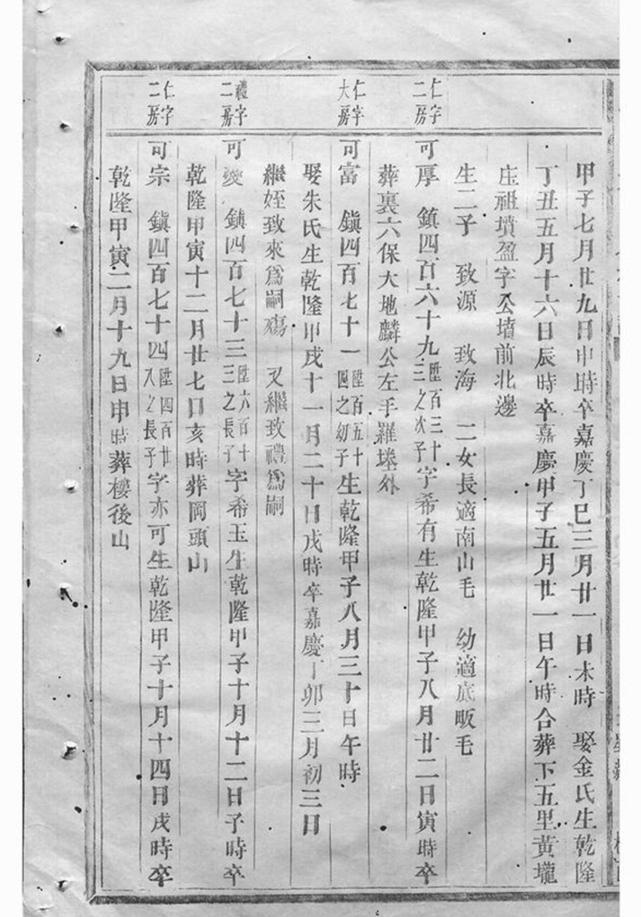 甲子七月廿九日申時卒嘉慶丁巳三月廿一日未時　娶金氏生乾隆
丁丑五月十六日辰時卒嘉慶甲子五月廿一日午時合葬下五里黃壠
庄祖墳盈字公墳前北邊
生二子　致源　致海　二女長適南山毛　幼適底畈毛
仁字二房
可厚　鎮四百六十九陞百三十三之次子字希有生乾隆甲子八月廿二日寅時卒
葬裏六保大地麟公左手羅塋外
仁字大房
可富　鎮四百七十一陞百五十四之幼子生乾隆甲子八月三十日午時
娶朱氏生乾隆甲戌十一月二十日戌時卒嘉慶丁卯三月初三日
繼姪致來為嗣殤　又繼致禮為嗣
禮字二房
可愛　鎮四百七十三陞六百十三之長子字希玉生乾隆甲子十月十二日子時卒
乾隆甲寅十二月廿七日亥時葬岡頭山
仁字二房
可宗　鎮四百七十四陞四百廿八之長子字亦可生乾隆甲子十月十四日戌時卒
乾隆甲寅二月十九日申時葬樓後山